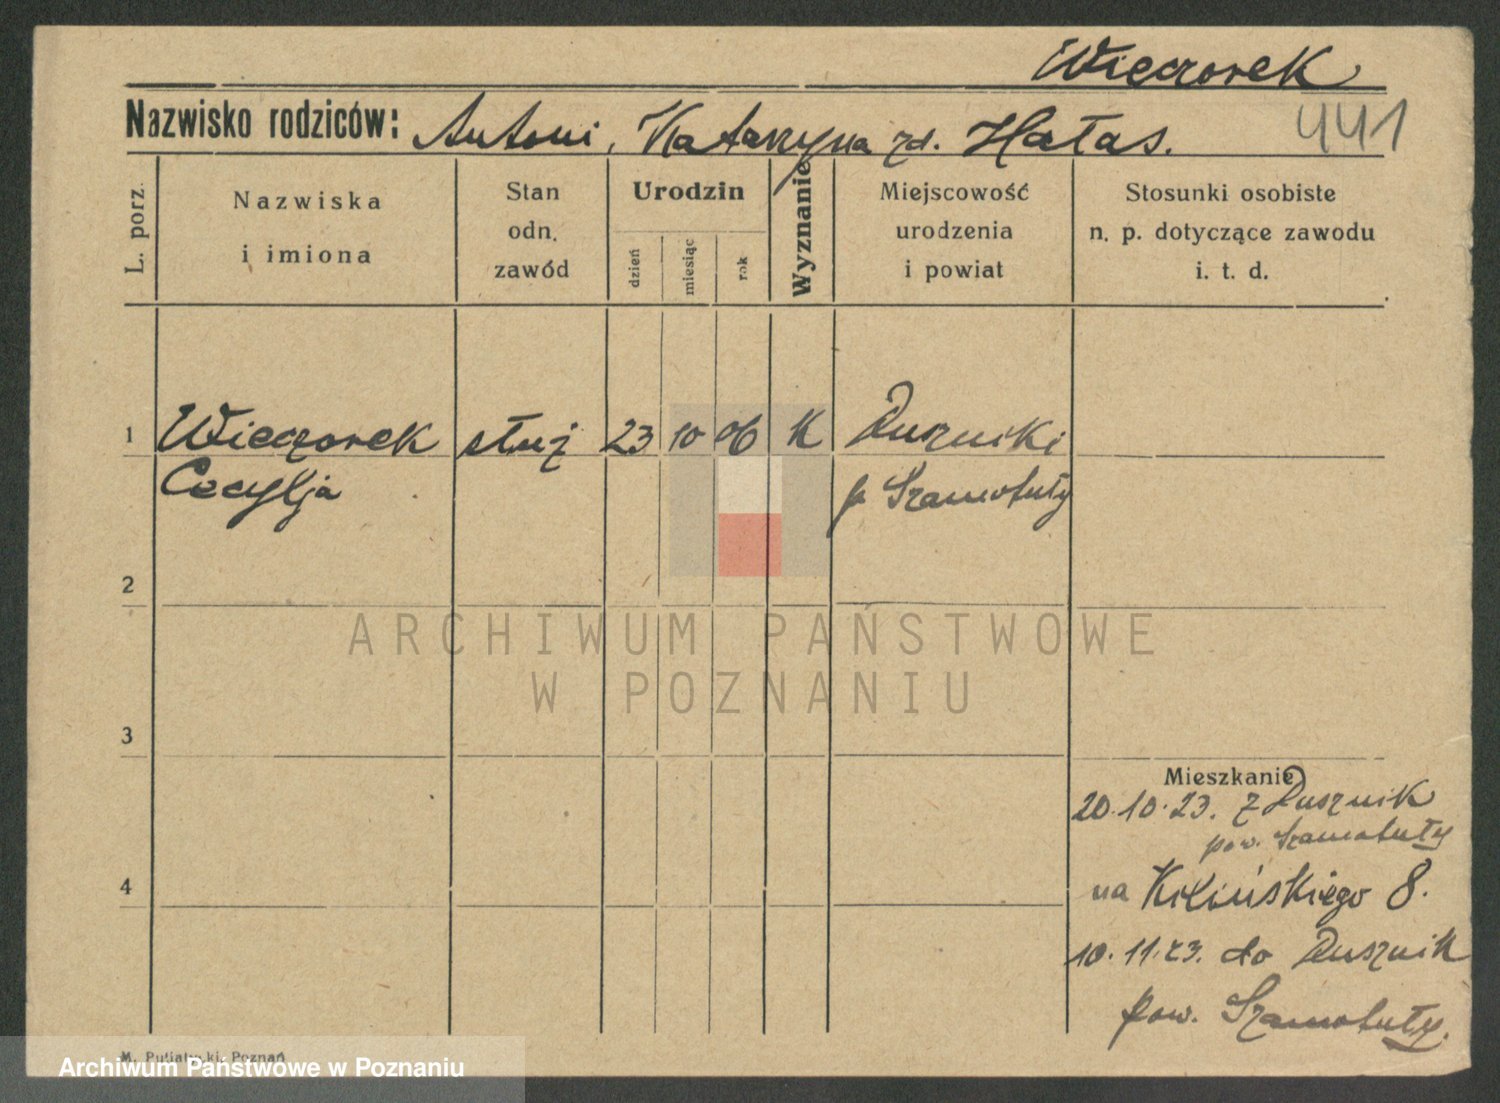 Wieczorek
Nazwisko rodziców: Antoni, Katarzyna zd. Hałas.
441
L. porz.
Nazwiska
i imiona
Stan
odn.
zawód
Urodzin
dzień
miesiąc
rok
Wyznanie
Miejscowość
urodzenia
i powiat
Stosunki osobiste
n. p. dotyczące zawodu
i. t. d.
1 Wieczorek służ 23 10 06 K Duszniki
Cecylja p Szamotuły
2
ARCHIWUM PAŃSTWOWE
W POZNANIU
3
Mieszkanie
20.10.23. z Dusznik
pow. Szamotuły
4
na Kilińskiego 8.
10.11.23. do Dusznik
pow. Szamotuły.
M. Putiatycki, Poznań
Archiwum Państwowe w Poznaniu